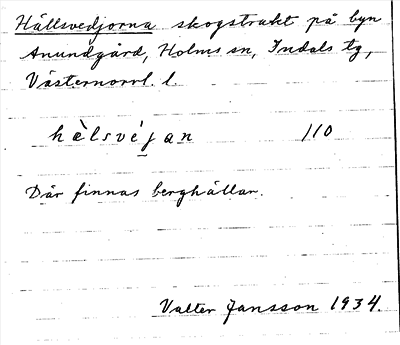 Hällsvedjorna skogstrakt på byn
Anundgård, Holms sn, Indals tg,
Västernorrl. l.
hὲlsvéjan 110
Där finnas berghällar.
Valter Jansson 1934.